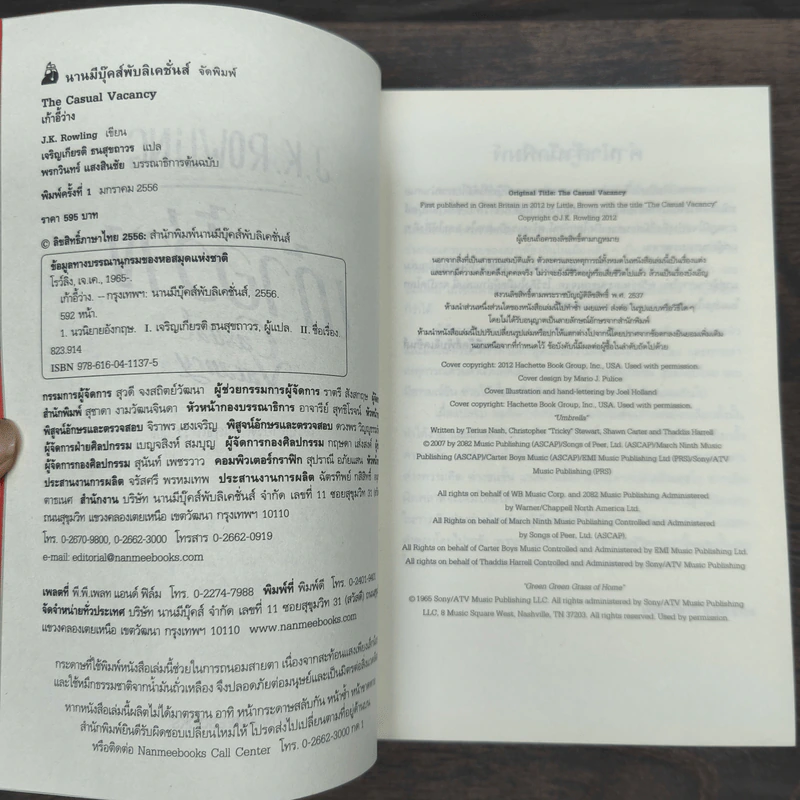 นานมีบุ๊คส์พับลิเคชั่นส์ จัดพิมพ์
The Casual Vacancy
เก้าอี้ว่าง
J.K. Rowling เขียน
เจริญเกียรติ ธนสุขถาวร แปล
พรกวินทร์ แสงสินชัย บรรณาธิการต้นฉบับ
พิมพ์ครั้งที่ 1 มกราคม 2556
ราคา 595 บาท
© ลิขสิทธิ์ภาษาไทย 2556: สำนักพิมพ์นานมีบุ๊คส์พับลิเคชั่นส์
ข้อมูลทางบรรณานุกรมของหอสมุดแห่งชาติ
โรว์ลิ่ง, เจ.เค., 1965-.
เก้าอี้ว่าง. -- กรุงเทพฯ: นานมีบุ๊คส์พับลิเคชั่นส์, 2556.
592 หน้า.
1. นวนิยายอังกฤษ. I. เจริญเกียรติ ธนสุขถาวร, ผู้แปล. II. ชื่อเรื่อง.
823.914
ISBN 978-616-04-1137-5
กรรมการผู้จัดการ สุวดี จงสถิตย์วัฒนา ผู้ช่วยกรรมการผู้จัดการ ราตรี สังสกฤษ
สำนักพิมพ์ สุชาดา งามวัฒนจินดา หัวหน้ากองบรรณาธิการ อาจารีย์ สุทธิโรจน์
พิสูจน์อักษรและตรวจสอบ จิราพร เฮงเจริญ พิสูจน์อักษรและตรวจสอบ ดวงพร วิญญูธรรม
ผู้จัดการฝ่ายศิลปกรรม เบญจสิงห์ สมบุญ ผู้จัดการกองศิลปกรรม กฤษดา เส่งสงค์
ผู้จัดการกองศิลปกรรม สุนันท์ เพชรวาว คอมพิวเตอร์กราฟิก สุปราณี อภัยแสน
ประสานงานการผลิต จรัสศรี พรหมเทพ ประสานงานการผลิต ฉัตรทิพย์ กสิสิทธิ์
ตารเนศ สำนักงาน บริษัท นานมีบุ๊คส์พับลิเคชั่นส์ จำกัด เลขที่ 11 ซอยสุขุมวิท 31
ถนนสุขุมวิท แขวงคลองเตยเหนือ เขตวัฒนา กรุงเทพฯ 10110
โทร. 0-2670-9800, 0-2662-3000 โทรสาร 0-2662-0919
e-mail: editorial@nanmeebooks.com
เพลตที่ พี.พี.เพลท แอนด์ ฟิล์ม โทร. 0-2274-7988 พิมพ์ที่ พิมพ์ดี โทร. 0-2401-9401
จัดจำหน่ายทั่วประเทศ บริษัท นานมีบุ๊คส์ จำกัด เลขที่ 11 ซอยสุขุมวิท 31 (สวัสดี)
แขวงคลองเตยเหนือ เขตวัฒนา กรุงเทพฯ 10110 www.nanmeebooks.com
กระดาษที่ใช้พิมพ์หนังสือเล่มนี้ช่วยในการถนอมสายตา เนื่องจากสะท้อนแสงเพียงเล็กน้อย
และใช้หมึกธรรมชาติจากน้ำมันถั่วเหลือง จึงปลอดภัยต่อมนุษย์และเป็นมิตรต่อสิ่งแวดล้อม
หากหนังสือเล่มนี้ผลิตไม่ได้มาตรฐาน อาทิ หน้ากระดาษสลับกัน หน้าซ้ำ หน้าขาดหาย
สำนักพิมพ์ยินดีรับผิดชอบเปลี่ยนใหม่ให้ โปรดส่งไปเปลี่ยนตามที่อยู่ด้านบน
หรือติดต่อ Nanmeebooks Call Center โทร. 0-2662-3000 กด 1
Original Title: The Casual Vacancy
First published in Great Britain in 2012 by Little, Brown with the title "The Casual Vacancy"
Copyright © J.K. Rowling 2012
ผู้เขียนถือครองลิขสิทธิ์ตามกฎหมาย
นอกจากสิ่งที่เป็นสาธารณสมบัติแล้ว ตัวละครและเหตุการณ์ทั้งหมดในหนังสือเล่มนี้เป็นเรื่องแต่ง
และหากมีความคล้ายคลึงบุคคลจริง ไม่ว่าจะยังมีชีวิตอยู่หรือเสียชีวิตไปแล้ว ล้วนเป็นเรื่องบังเอิญ
สงวนลิขสิทธิ์ตามพระราชบัญญัติลิขสิทธิ์ พ.ศ. 2537
ห้ามนำส่วนหนึ่งส่วนใดของหนังสือเล่มนี้ไปทำซ้ำ เผยแพร่ ส่งต่อ ในรูปแบบหรือวิธีใดๆ
โดยไม่ได้รับอนุญาตเป็นลายลักษณ์อักษรจากสำนักพิมพ์
ห้ามนำหนังสือเล่มนี้ไปปรับเปลี่ยนรูปเล่มหรือปกให้แตกต่างไปจากนี้โดยปราศจากข้อตกลงยินยอมเพิ่มเติม
นอกเหนือจากที่กำหนดไว้ ข้อบังคับนี้มีผลต่อผู้ซื้อในลำดับถัดไปด้วย
Cover copyright: 2012 Hachette Book Group, Inc., USA. Used with permission.
Cover design by Mario J. Pulice
Cover Illustration and hand-lettering by Joel Holland
Cover copyright: Hachette Book Group, Inc., USA. Used with permission.
"Umbrella"
Written by Terius Nash, Christopher "Tricky" Stewart, Shawn Carter and Thaddis Harrell
© 2007 by 2082 Music Publishing (ASCAP)/Songs of Peer, Ltd. (ASCAP)/March Ninth Music
Publishing (ASCAP)/Carter Boys Music (ASCAP)/EMI Music Publishing Ltd (PRS)/Sony/ATV
Music Publishing (PRS)
All rights on behalf of WB Music Corp. and 2082 Music Publishing Administered
by Warner/Chappell North America Ltd.
All Rights on behalf of March Ninth Music Publishing Controlled and Administered
by Songs of Peer, Ltd. (ASCAP).
All Rights on behalf of Carter Boys Music Controlled and Administered by EMI Music Publishing Ltd.
All rights on behalf of Thaddis Harrell Controlled and Administered by Sony/ATV Music Publishing
"Green Green Grass of Home"
© 1965 Sony/ATV Music Publishing LLC. All rights administered by Sony/ATV Music Publishing
LLC. 8 Music Square West, Nashville, TN 37203. All rights reserved. Used by permission.